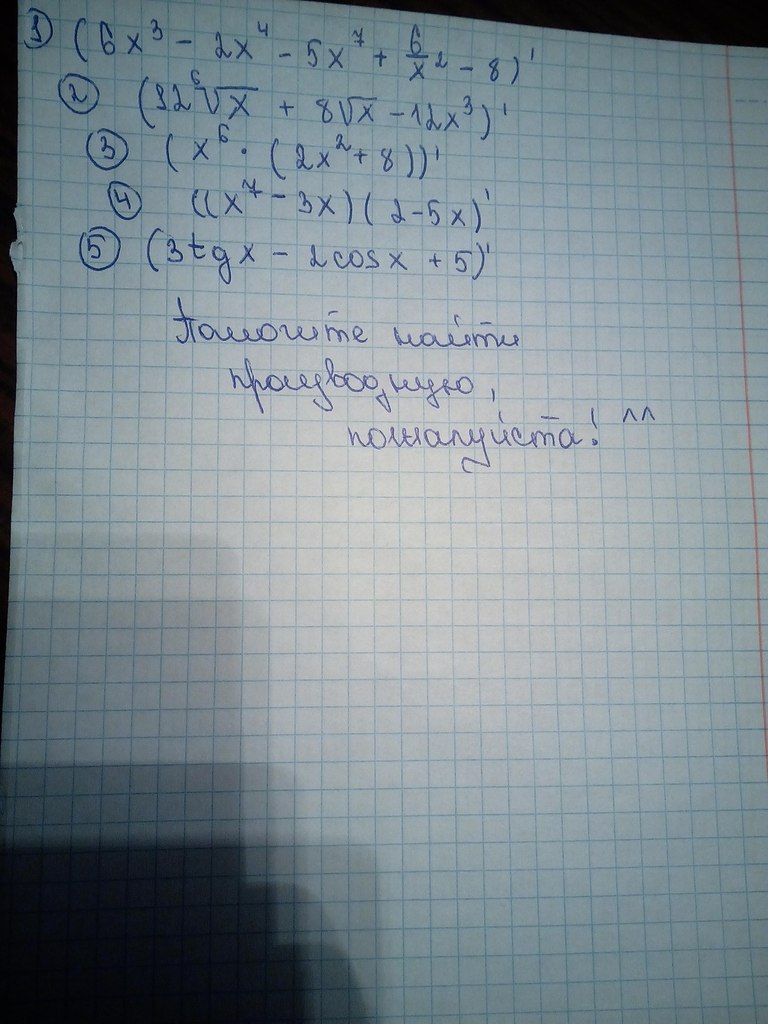 1) (6x³ - 2x⁴ - 5x⁷ + 6/x² - 8)'
2) (32 ⁶√x + 8√x - 12x³)'
3) (x⁶ · (2x² + 8))'
4) ((x⁷ - 3x)(2-5x)'
5) (3tgx - 2cosx + 5)'
Помогите найти
производную,
пожалуйста! ^^